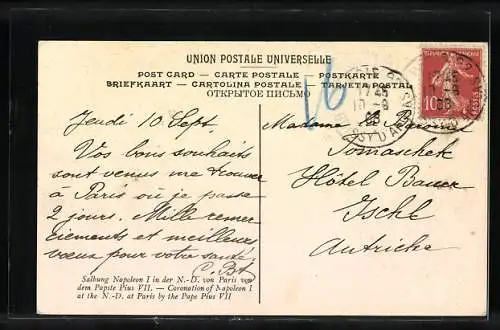 UNION POSTALE UNIVERSELLE
POST CARD – CARTE POSTALE – POSTKARTE
BRIEFKAART – CARTOLINA POSTALE – TARJETA POSTAL
ОТКРЫТОЕ ПИСЬМО
16
10
Jeudi 10 Sept.
Vos bons souhaits
sont venus me trouver
à Paris où je passe
2 jours. Mille remer
ciements et meilleurs
vœux pour votre santé.
C. Bt
Madame la Baronne
Tomaschek
Hôtel Bauer
Ischl
Autriche
Salbung Napoleon I in der N.-D. von Paris von
dem Papste Pius VII. — Coronation of Napoleon I
at the N.-D. at Paris by the Pape Pius VII